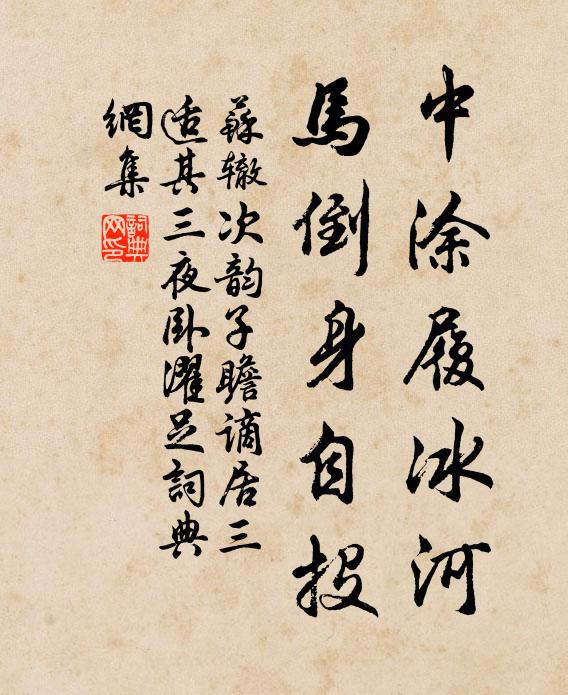 中涂履冰河
馬倒身自投
蘇辙次韵子瞻谪居三
适其三夜卧濯足詞典
網集
詞典網印